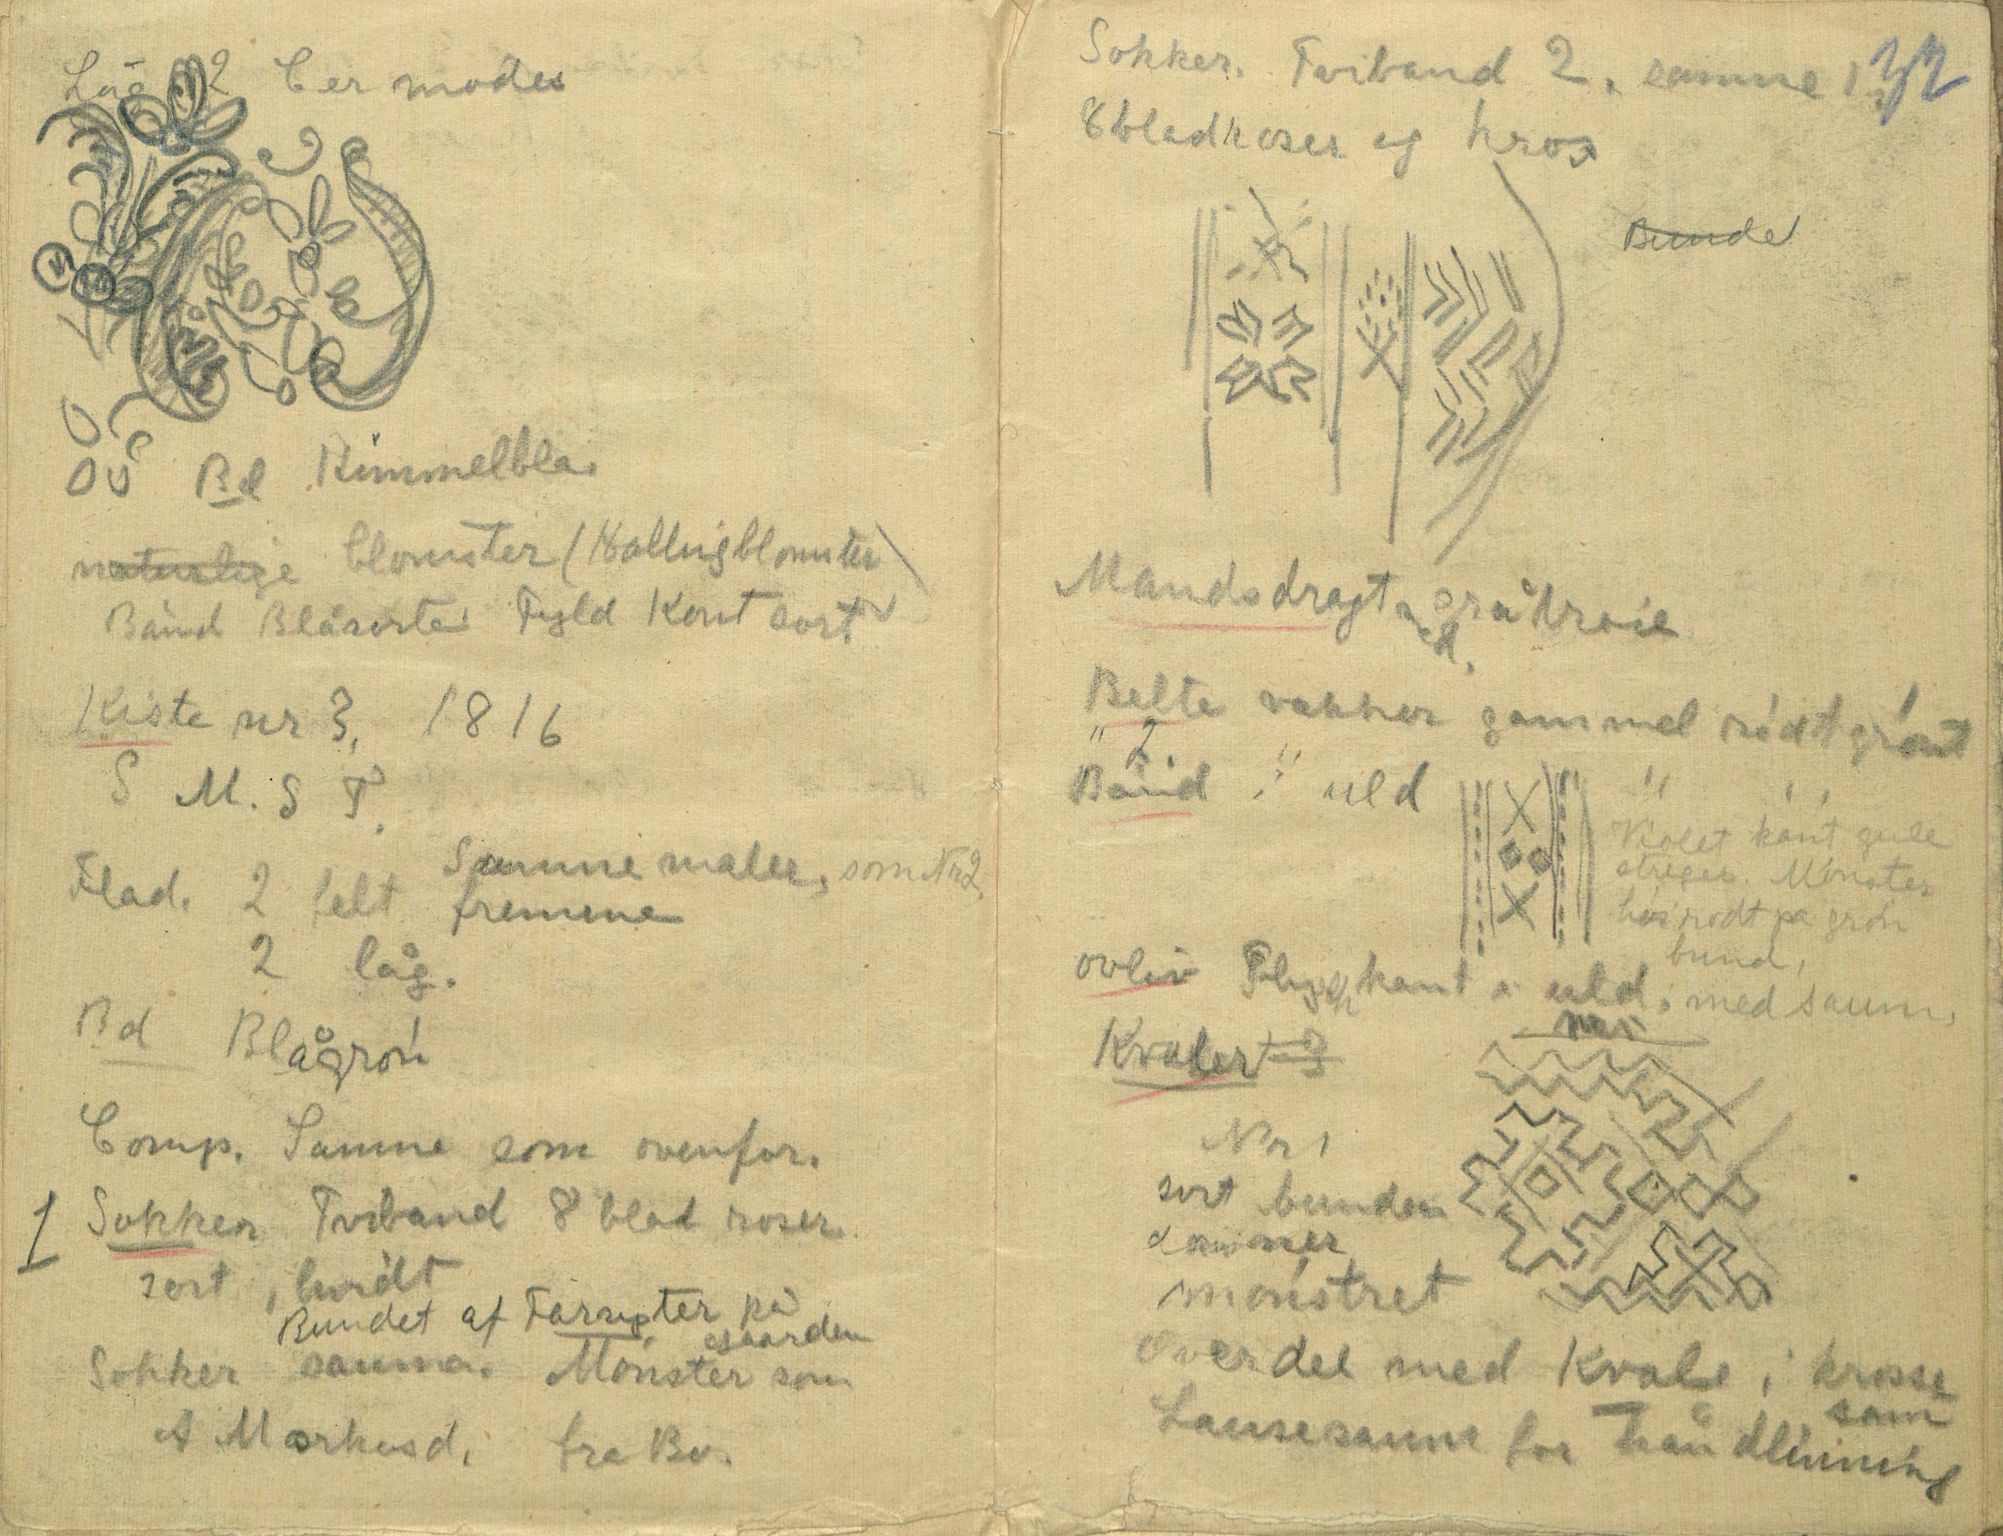 Låg 2 C er modes
Bd Himmelbla.
naturlige blomster (Hallingblomster)
Bånd Blåsorte Fyld Kont sort
Kiste nr 3. 1816
S M. S T.
Samme maler, som Nr 2.
Flad. 2 felt fremme
2 låg.
Bd Blågrön
Comp. Samme som ovenfor.
1 Sokker Tviband 8 blad roser
sort, hvidt
Bundet af på
gaarden
Sokker sauma. Mönster som
A Markusd. fra Bu.
Sokker. Tviband 2. samme 32
8bladroser og kros
Bunde
Mandsdragt gråtrøie
Belte vakker gammel rödt grönt
" 2
Bånd " uld "
Violet kant gule
streger. Mönster
rödt på grön
bund.
ovliv Plyggkant uld. med saum.
Kvaler 3
Nr 1
sort bunden
mönstret
Overdel med Kvale i krosse
saum
Lausesaum for Håndlinning